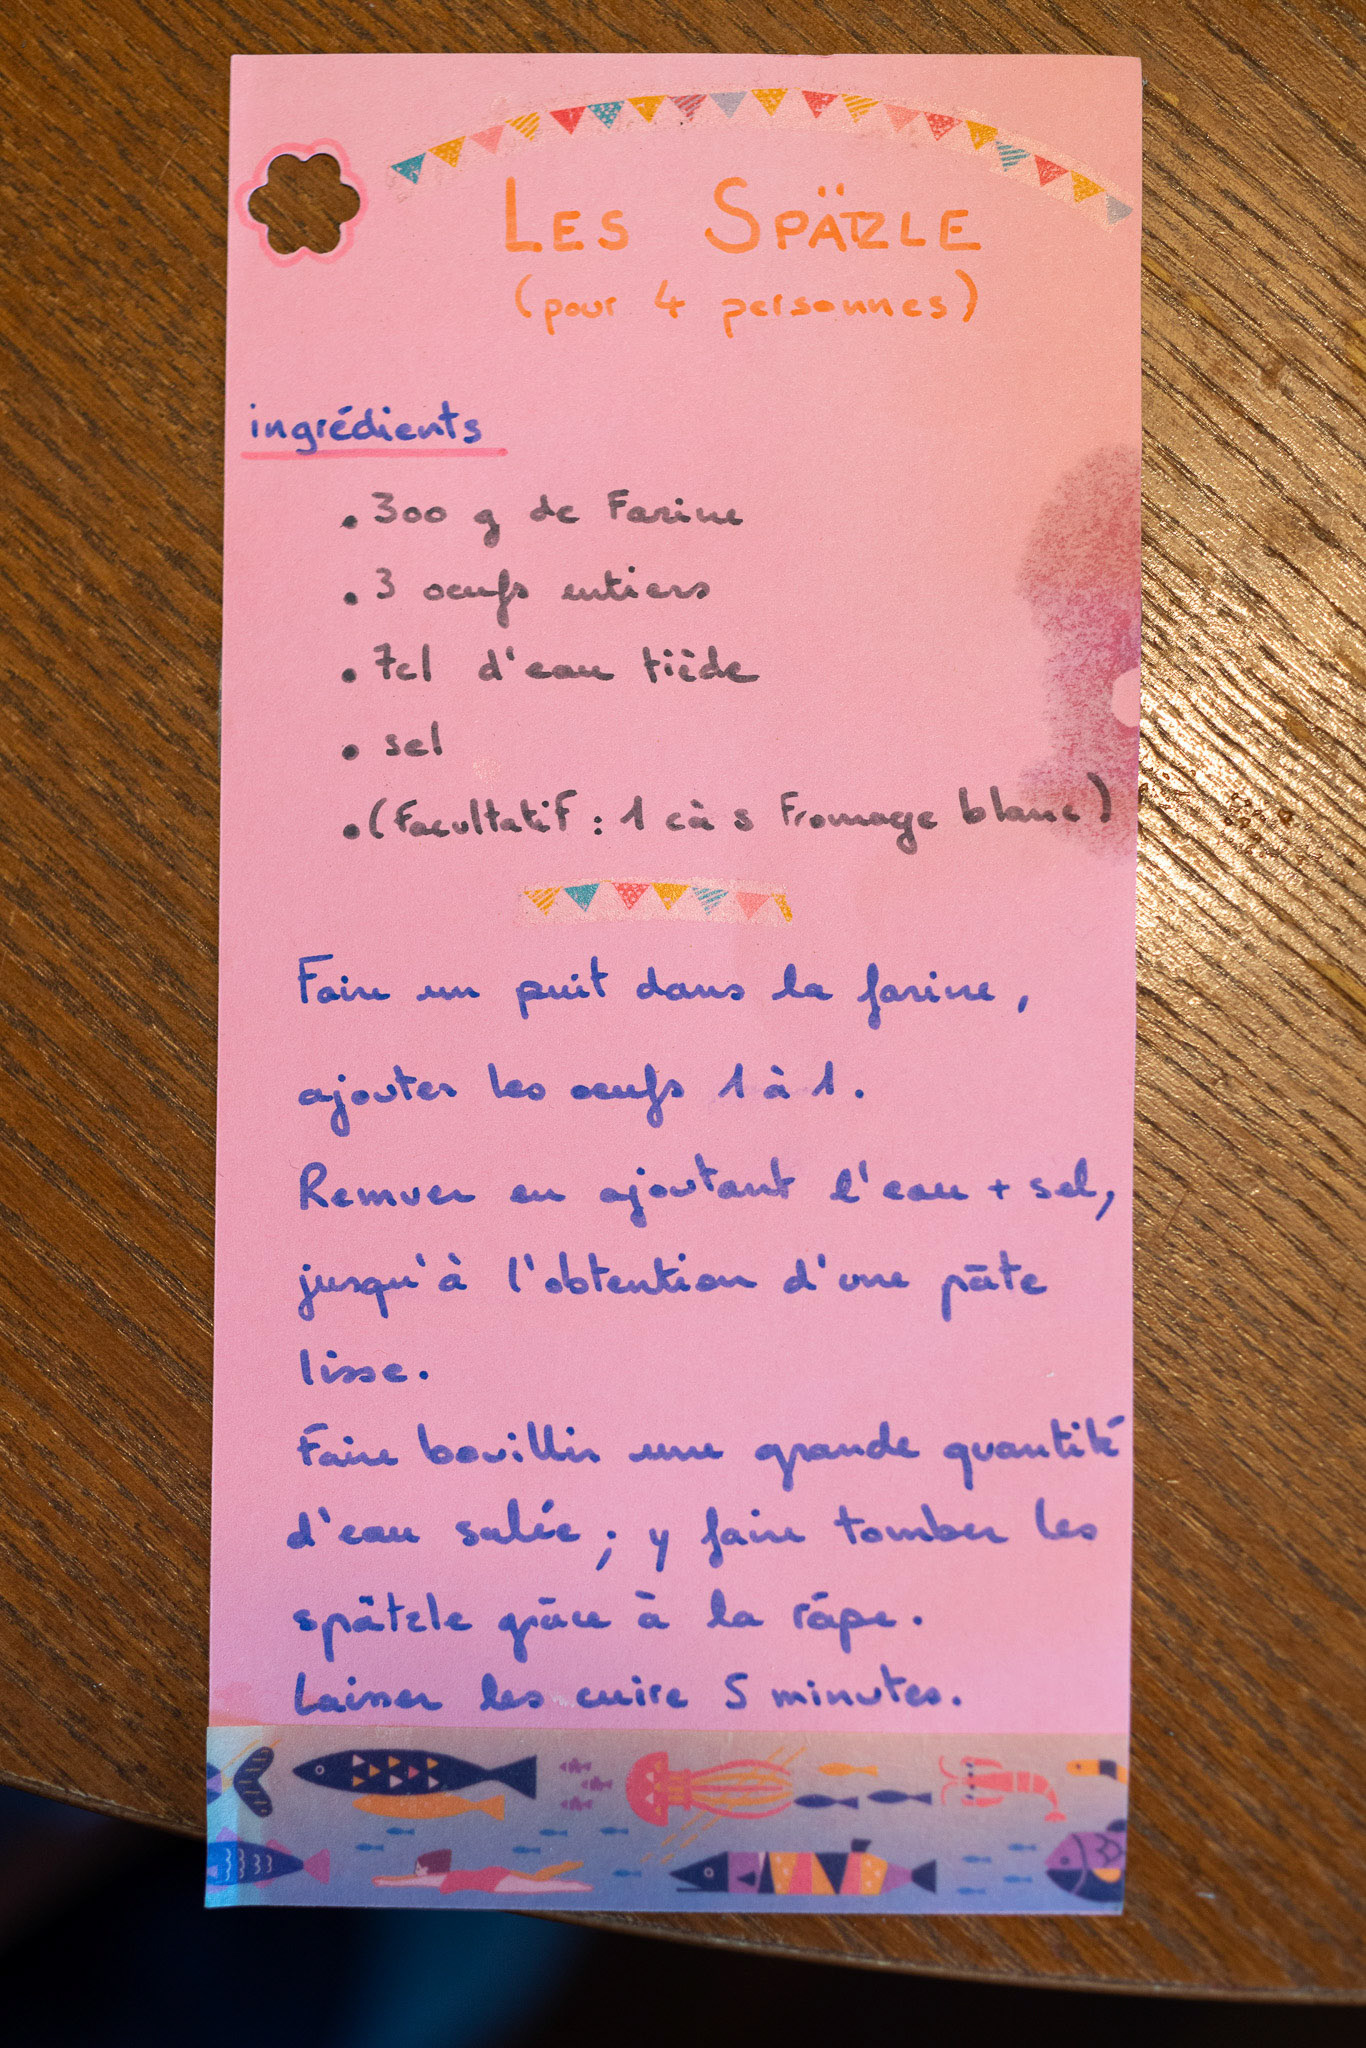 LES SPÄTZLE
(pour 4 personnes)
ingrédients
• 300 g de Farine
• 3 oeufs entiers
• 7cl d'eau tiède
• sel
• (Facultatif : 1 cà s Fromage blanc)
Faire un puit dans la farine,
ajouter les oeufs 1 à 1.
Remuer en ajoutant l'eau + sel,
jusqu'à l'obtention d'une pâte
lisse.
Faire bouillir une grande quantité
d'eau salée ; y faire tomber les
spätzle grâce à la râpe.
Laisser les cuire 5 minutes.